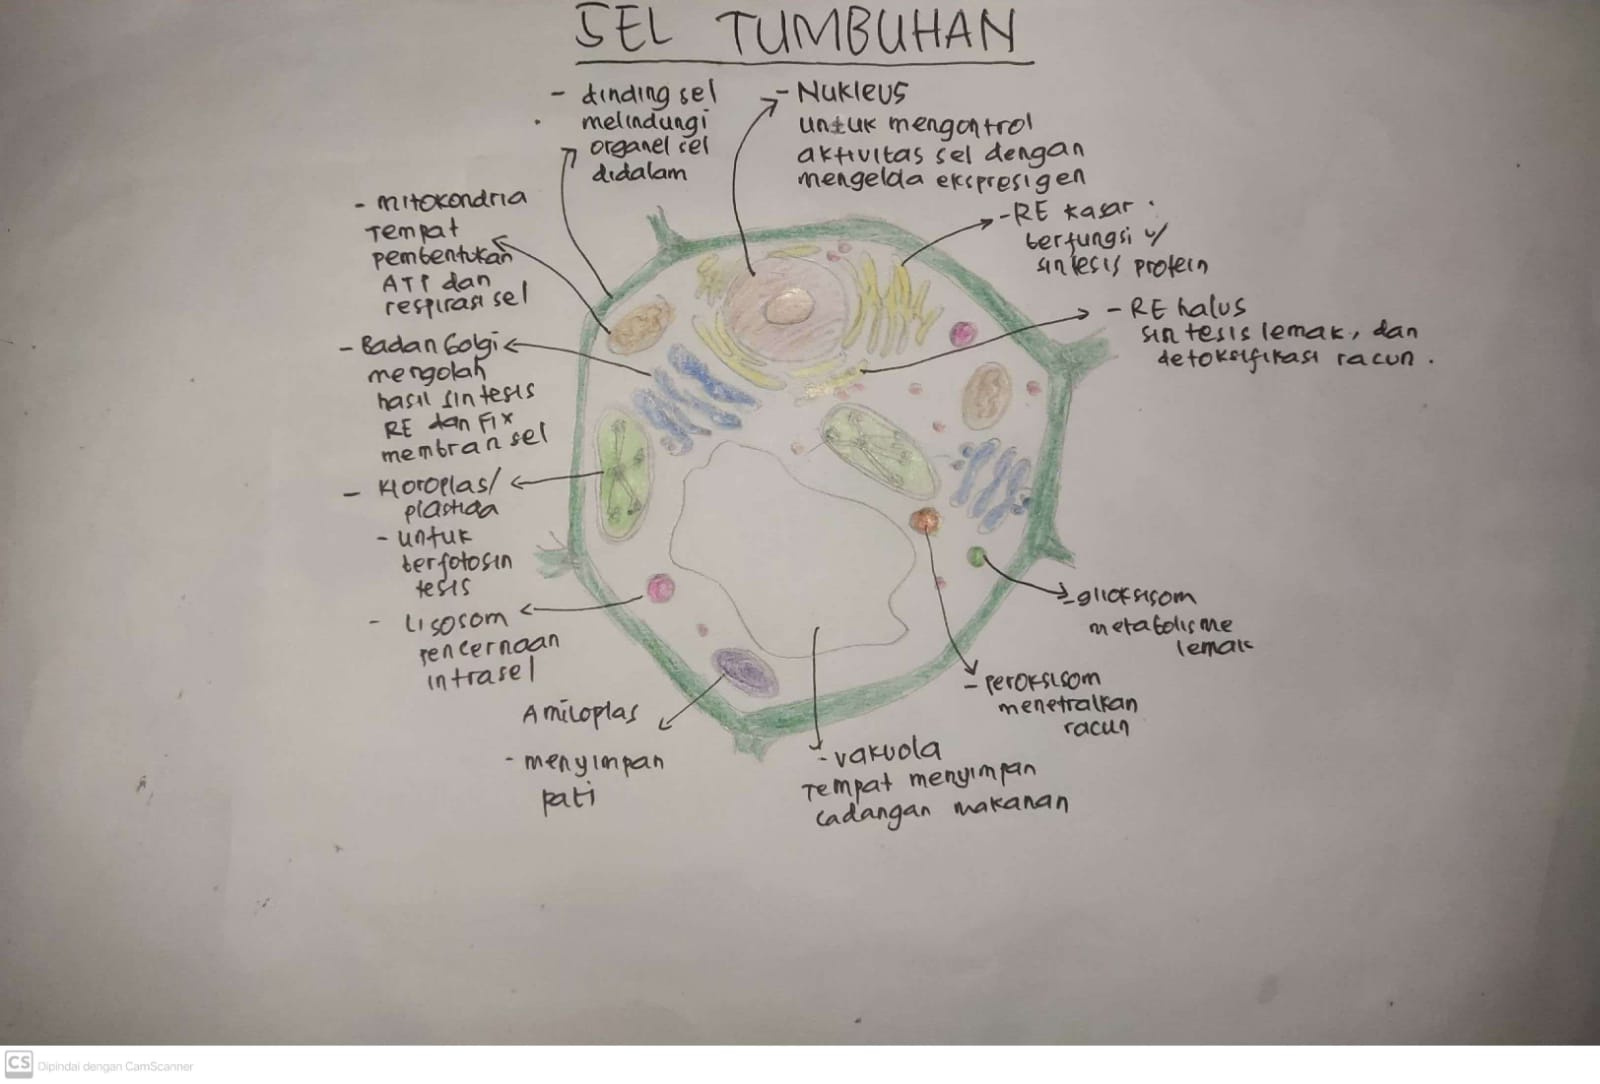 SEL TUMBUHAN
- dinding sel
melindungi
organel sel
didalam
- Nukleus
untuk mengontrol
aktivitas sel dengan
mengelda ekspresigen
- mitokondria
Tempat
pembentukan
ATP dan
respirasi sel
- RE kasar
berfungsi u/
sintesis protein
- RE halus
sintesis lemak, dan
detoksifikasi racun.
- Badan Golgi
mengolah
hasil sintesis
RE dan Fix
membran sel
- Kloroplas/
plastida
- untuk
berfotosin
tesis
- Lisosom
pencernaan
intrasel
Amiloplas
- menyimpan
pati
- vakuola
Tempat menyimpan
cadangan makanan
- peroksisom
menetralkan
racun
- glioksisom
metabolisme
lemak
CS Dipindai dengan CamScanner